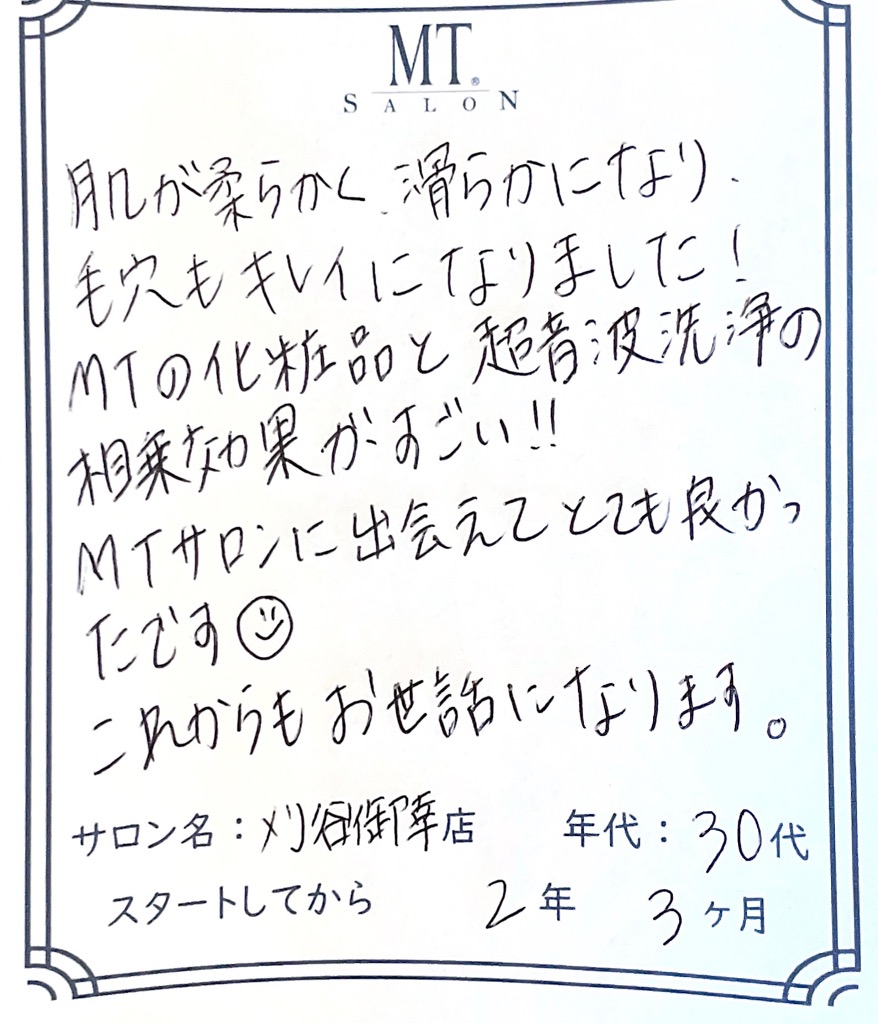 MT®
SALON
肌が柔らかく、滑らかになり、
毛穴もキレイになりました！
MTの化粧品と超音波洗浄の
相乗効果がすごい!!
MTサロンに出会えてとても良かっ
たです☺
これからもお世話になります。
サロン名：刈谷御幸店　年代：30代
スタートしてから　2年　3ヶ月